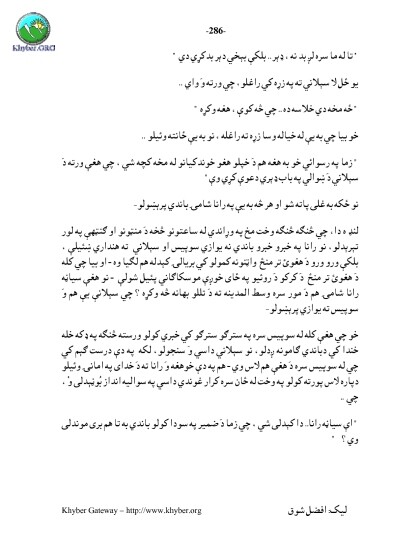 -286-
Khyber.ORG
" تا له ما سره لږ بد نه ، ډېر .. بلکې بېخي ډېر بد کړي دي "
يو ځل لا سېلاني ته په زړه کې راغلو ، چې ورته وَ وائي ..
" څه مخدې خلاسه ده .. چې څه کوې ، هغه وکړه "
خو بيا چې به يې له خياله وسا زړه ته راغله ، نو به يې ځانته وئيلو ..
" زما په رسوائي خو به هغه هم دَ خپلو هغو خوندکيانو له مخه کچه شي ، چې هغې ورته دَ
سېلاني دَ ښوالي په باب ډېرې دعوې کړې وې "
نو ځکه به غلی پاته شو او هر څه به يې په رانا شامۍ باندي پرېښولو-
لنډه دا ، چې څنګه څنګه وخت مخ په وړاندي له ساعتونو څخه دَ منټونو او ګنټهې په لور
تېرېدلو ، نو رانا په خبرو خبرو باندې نه يوازې سوپيس او سېلاني ته هنداري ښئيلې ،
بلکې ورو ورو دَ هغوئ تر منځ واټونه کمولو کې بريالۍ کېدله هم لګيا وه - او بيا چې کله
دَ هغوئ تر منځ دَ کرکو دَ روټيو په ځای خوږې موسکاګانې پئيل شولې - نو هغې سپاڼه
رانا شامۍ هم دَ مور سره وسط المدينه ته دَ تللو بهانه څه وکړه ؟ چې سېلاني يې هم وَ
سوپيس ته يوازې پرېښولو-
خو چې هغې کله له سوپيس سره په سترګو سترګو کې خبرې کولو ورسته څنګه په ډکه خله
خندا کې دباندي ګامونه ږدلو ، نو سېلاني داسې وَ سنجولو ، لکه په دې درست ګېم کې
چې له سوپيس سره دَ هغې هم لاس وي - هم په دې خو هغه وَ رانا ته دَ خدای په امانۍ وئيلو
دپاره لاس پورته کولو په وخت له ځان سره کرار غوندي داسې په سواليه انداز پُوښېدلی وُ ،
چې ..
" اې سپاڼه رانا .. دا کېدلی شي ، چې زما دَ ضمير په سودا کولو باندې به تا هم برې موندلی
وي ؟ "
Khyber Gateway – http://www.khyber.org
ليک: افضل شوق